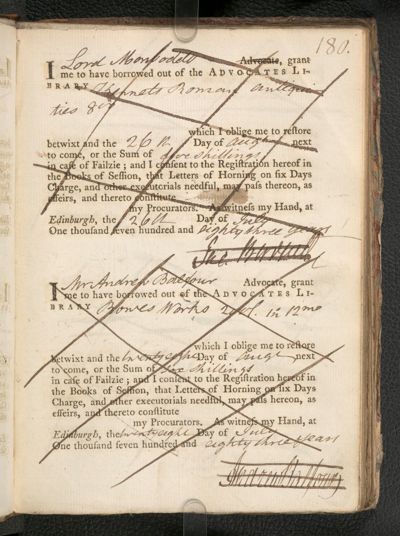 180.
I Lord Monboddo Advocate, grant
me to have borrowed out of the ADVOCATES LI-
BRARY Kennets Roman antiqui
ties 8º
which I oblige me to restore
betwixt and the 26th Day of augt next
to come, or the Sum of five shillings
in case of Failzie; and I consent to the Registration hereof in
the Books of Session, that Letters of Horning on six Days
Charge, and other executorials needful, may pass thereon, as
effeirs, and thereto constitute
my Procurators. As witness my Hand, at
Edinburgh, the 26th Day of July
One thousand seven hundred and eighty three years
I Mr Andrew Balfour Advocate, grant
me to have borrowed out of the ADVOCATES LI-
BRARY Works in 12mo
which I oblige me to restore
betwixt and the twenty eight Day of augt next
to come, or the Sum of six shillings
in case of Failzie; and I consent to the Registration hereof in
the Books of Session, that Letters of Horning on six Days
Charge, and other executorials needful, may pass hereon, as
effeirs, and thereto constitute
my Procurators. As witness my Hand, at
Edinburgh, the twenty eight Day of July
One thousand seven hundred and eighty three years